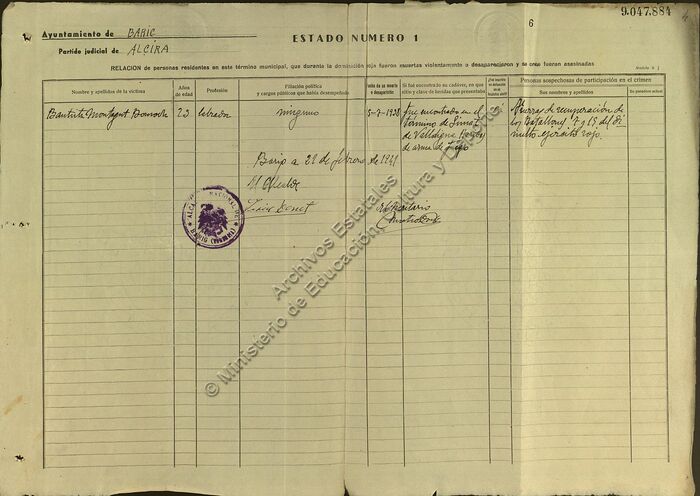 9.047.884
6
Ayuntamiento de BARIG
Partido judicial de ALCIRA
ESTADO NUMERO 1
RELACION de personas residentes en este término municipal, que durante la dominación roja fueron muertas violentamente o desaparecieron y se cree fueran asesinadas
Nombre y apellidos de la víctima
Años de edad
Profesión
Filiación política
y cargos públicos que había desempeñado
Fecha de su muerte o desaparición
Si fué encontrado su cadáver, en qué
sitio y clase de heridas que presentaba
Personas sospechosas de participación en el crimen
Sus nombres y apellidos
Su paradero actual
Bautista Montagut
23
Labrador
ninguno
5-7-1938
fue encontrado en el
término de Simat
de Valldigna
de arma de fuego
Fuerzas de recuperación de
los Batallones 7 y 15 del
ejército rojo.
Barig a 21 de febrero de 1941
El Alcalde
El Secretario
NACIONAL
BARIG
© Ministerio de Educación, Cultura y Deporte.
Archivos Estatales